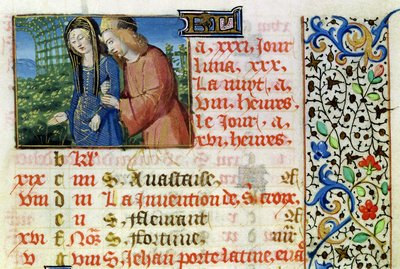 a. xxxi. Jour
luna. xxx.
La nuyt. a.
viii. heures.
le Jour. a.
xvi. heures.
b kl
xix c iiii S. Anastaise.
viii d iii La Invention de S. croix.
e ii S. flemant
xvi f Nos S. fortune.
v g viii S. Jehan porte latine.